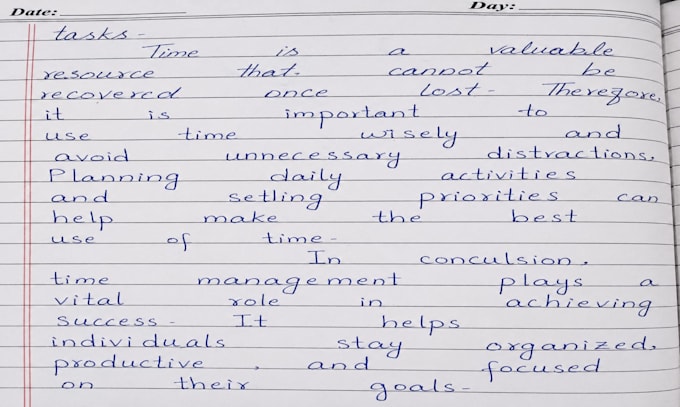 Date:
Day:
tasks-
Time is a valuable
resource that. cannot be
recovered once lost- Therefore,
it is important to
use time wisely and
avoid unnecessary distractions,
Planning daily activities
and setling priorities can
help make the best
use of time-
In conculsion,
time management plays a
vital role in achieving
success- It helps
individuals stay organized,
productive, and focused
on their goals-